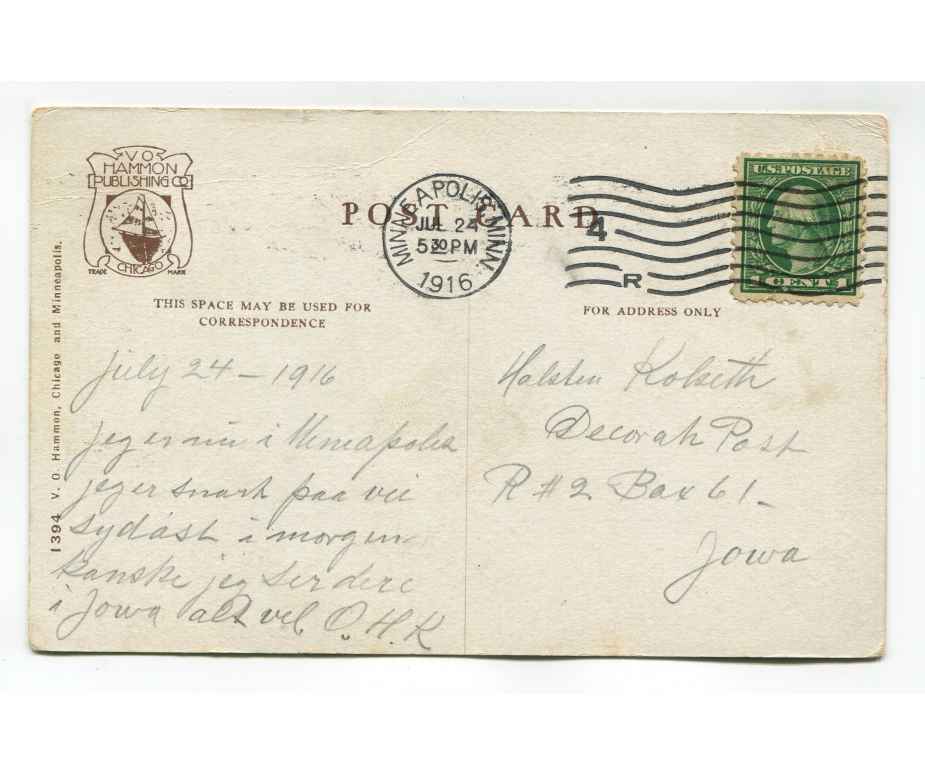 V O
HAMMON
PUBLISHING CO
TRADE CHICAGO MARK
1394 V. O. Hammon, Chicago and Minneapolis.
POST CARD
MINNEAPOLIS, MINN.
JUL 24
5 30 PM
1916
4
R
U.S. POSTAGE
1 CENT 1
THIS SPACE MAY BE USED FOR
CORRESPONDENCE
FOR ADDRESS ONLY
July 24 – 1916
jeg er nu i Mineapolis
jeg er snart paa vei
sydøst i morgen
kanske jeg ser dere
i Jowa alt vel. O. H. K
Halsten Kolseth
Decorah Post
R #2 Box 61 –
Jowa